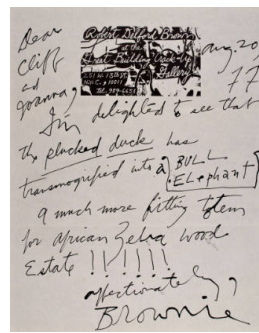 Dear
Cliff
and
Joanna,
Robert Delford Brown
at the
Great Building Crack-Up
Gallery
251 W. 13th St.
N.Y.C., 10011
Aug. 20,
77
I'm delighted to see that
the plucked duck has
transmogrified into a BULL
ELephant
a much more fitting totem
for African Zebra Wood
Estate !!!!!!
affectionately,
Brownie